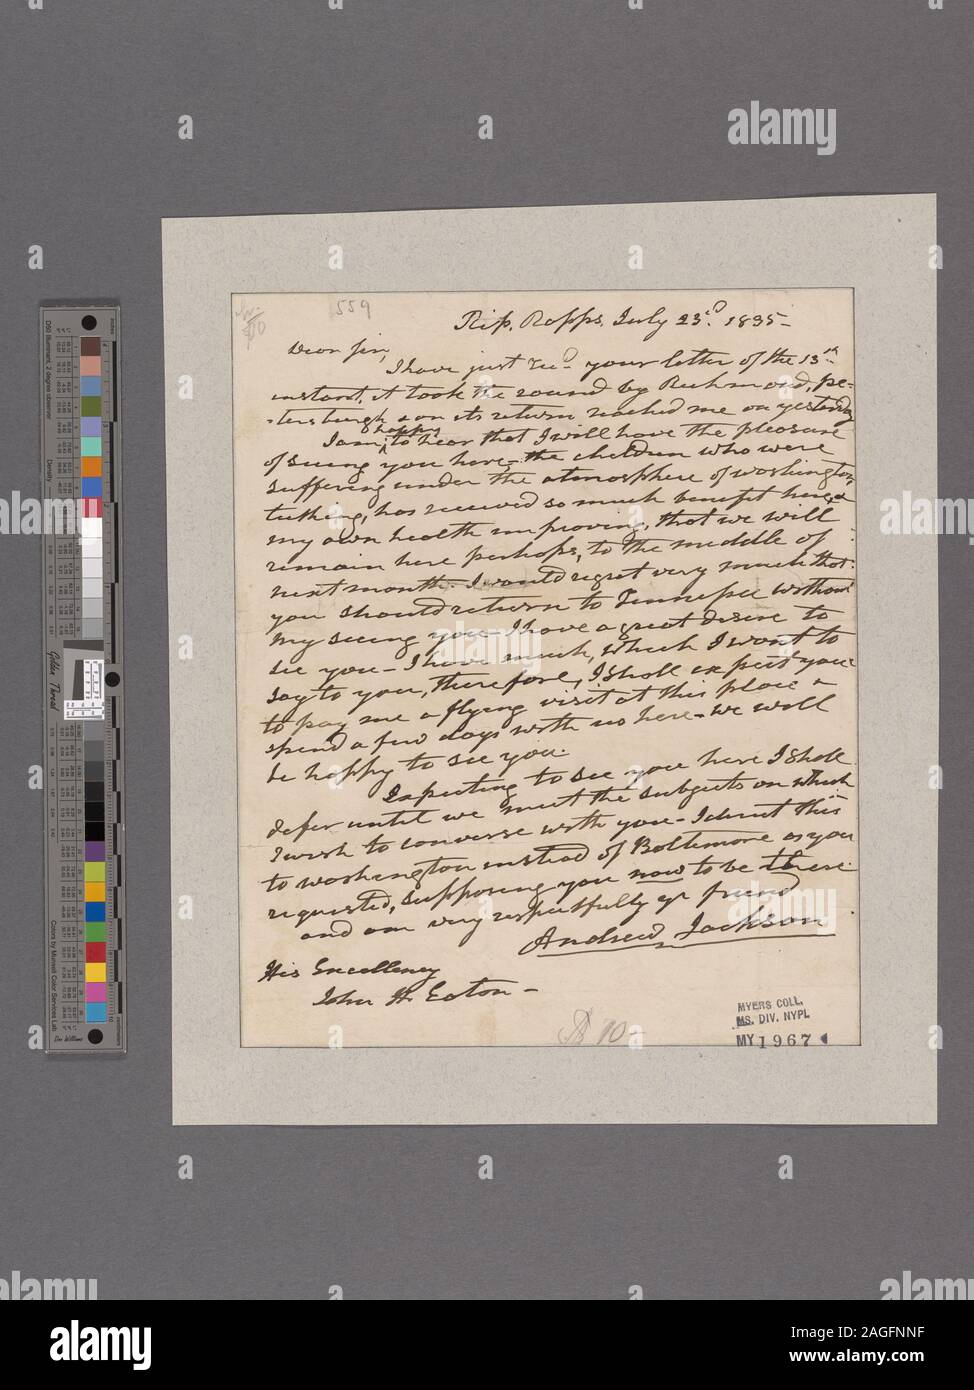 559
Rip. Rapps, July 23.d 1835-
Dear Sir,
I have just recd your letter of the 13th
instant, it took the round by Richmond, pe=
tersburgh & on its return reached me on yesterday
I am happy to hear that I will have the pleasure
of seeing you here- the children who were
suffering under the atmosphere of washington,
teething, has received so much benefit here, &
my own health improving, that we will
remain here perhaps, to the middle of
next month. I would regret very much that
you should return to Tennessee without
my seeing you- I have a great desire to
see you- I have much, which I want to
say to you, therefore, I shall expect you
to pay me a flying visit at this place &
spend a few days with us here- we will
be happy to see you.
Expecting to see you here I shall
defer until we meet the subjects on which
I wish to converse with you- I direct this
to washington instead of Baltimore as you
requested, supposing you now to be there
and am very respectfully yr friend
Andrew Jackson
His Excellency
John H. Eaton-
$ 10
MYERS COLL.
MS. DIV. NYPL
MY 1967
Golden Thread
D50 Illuminant, 2 degree observer
Density
Colors by Munsell Color Services Lab
inches
centimeters
alamy
alamy
alamy
alamy
alamy
alamy
alamy
alamy
Image ID: 2AGFNNF
www.alamy.com